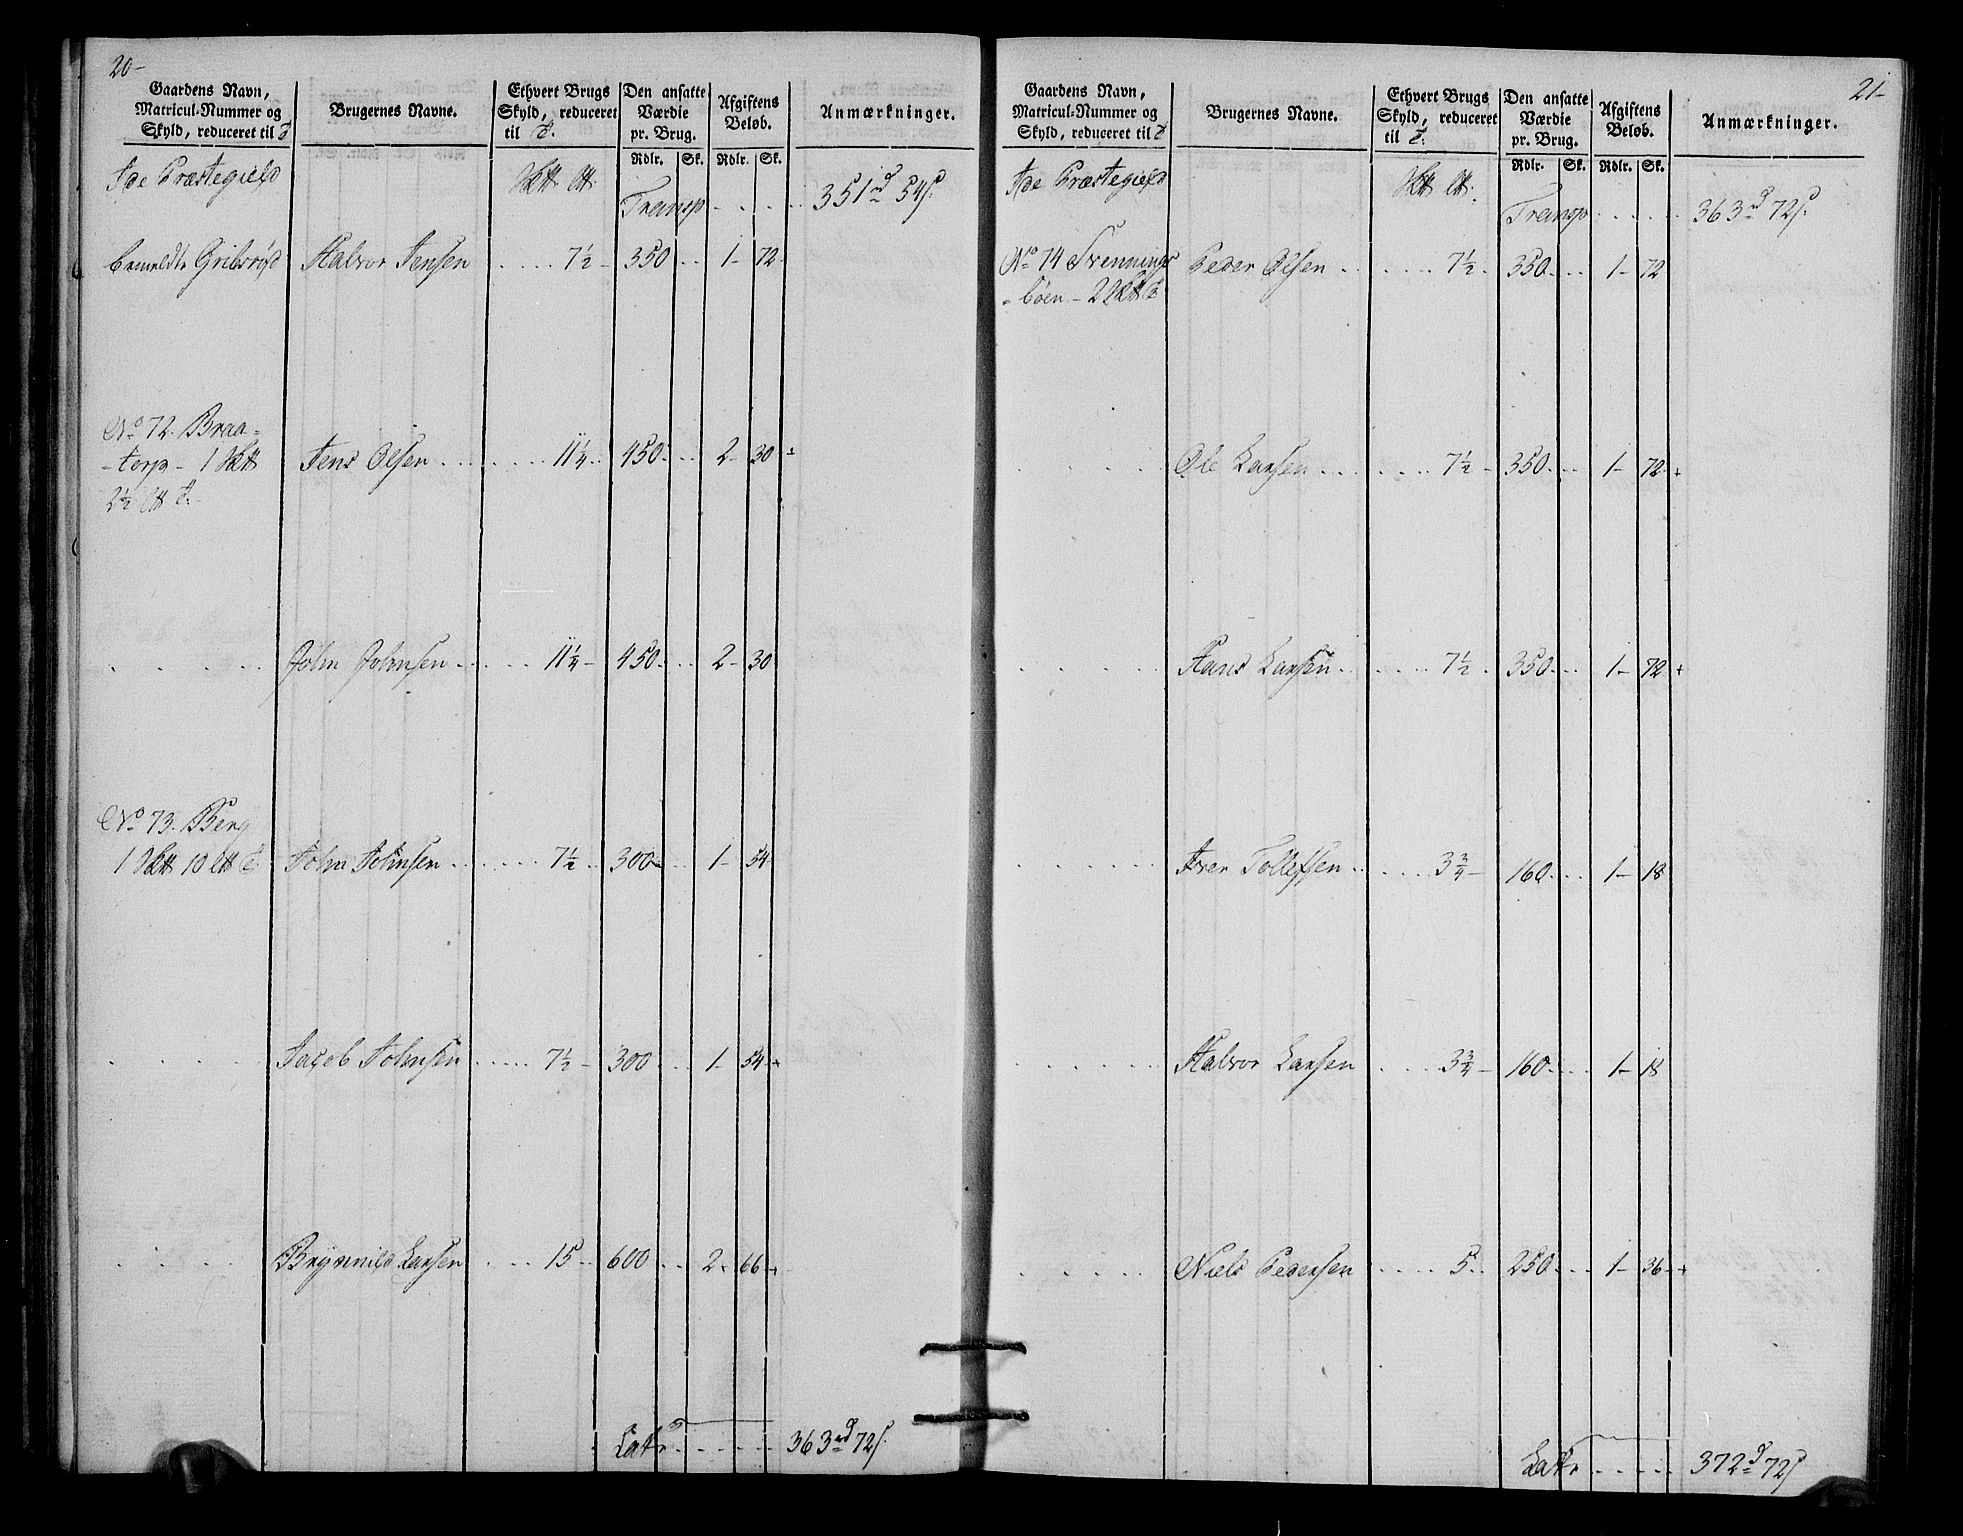 20-
Gaardens Navn, Matricul-Nummer og Skyld, reduceret til T
Brugernes Navne.
Ethvert Brugs Skyld, reduceret til T.
Den ansatte Værdie pr. Brug.
Afgiftens Beløb.
Anmærkninger.
Rdlr. Sk. Rdlr. Sk.
Ide Præstegield
Transp . . . . . 351 rd 54 s.
bemeldte Gribsrød Halvor Jensen . . . . 7½ - 350 . . 1 - 72
No 72. Braa-
-terp - 1 Skt Jens Olsen . . . . . . 11¼ . . 450 . . . 2 - 30
2½ Lt T.
. . . . . John Johnsen . . . . . 11¼ - 450 . . . 2 - 30
No 73. Berg
1 Skt 10 Lt T. John Johnsen . . . . . . 7½ . . 300 . . . 1 - 54
. . . . . Jacob Johnsen . . . . . 7½ - 300 . . . 1 - 54
. . . . Brynnild Larsen . . . 15 . . 600 . . . 2 . 66
Latr . . . . . 363 rd 72 s.
21-
Gaardens Navn, Matricul-Nummer og Skyld, reduceret til T
Brugernes Navne.
Ethvert Brugs Skyld, reduceret til T.
Den ansatte Værdie pr. Brug.
Afgiftens Beløb.
Anmærkninger.
Rdlr. Sk. Rdlr. Sk.
Ide Præstegield
Transp . . . . . 363 rd 72 s.
No 74 Svennings Peder Olsen . . . . . . 7½ . 350 . . . 1 - 72
-bøen - 2 Skt T
. . . . . Ole Larsen . . . . . . 7½ - 350 . . . 1 - 72
. . . . . Hans Larsen . . . . . 7½ . 350 . . . 1 - 72
. . . . . Iver Tollefsen . . . . . 3¾ - 160 . . . 1 - 18
. . . . . Halvor Larsen . . . . 3¾ - 160 . . . 1 - 18
. . . . . Niels Pedersen . . . . 5 . . 250 . . . 1 - 36
Latr . . . . . 372 rd 72 s